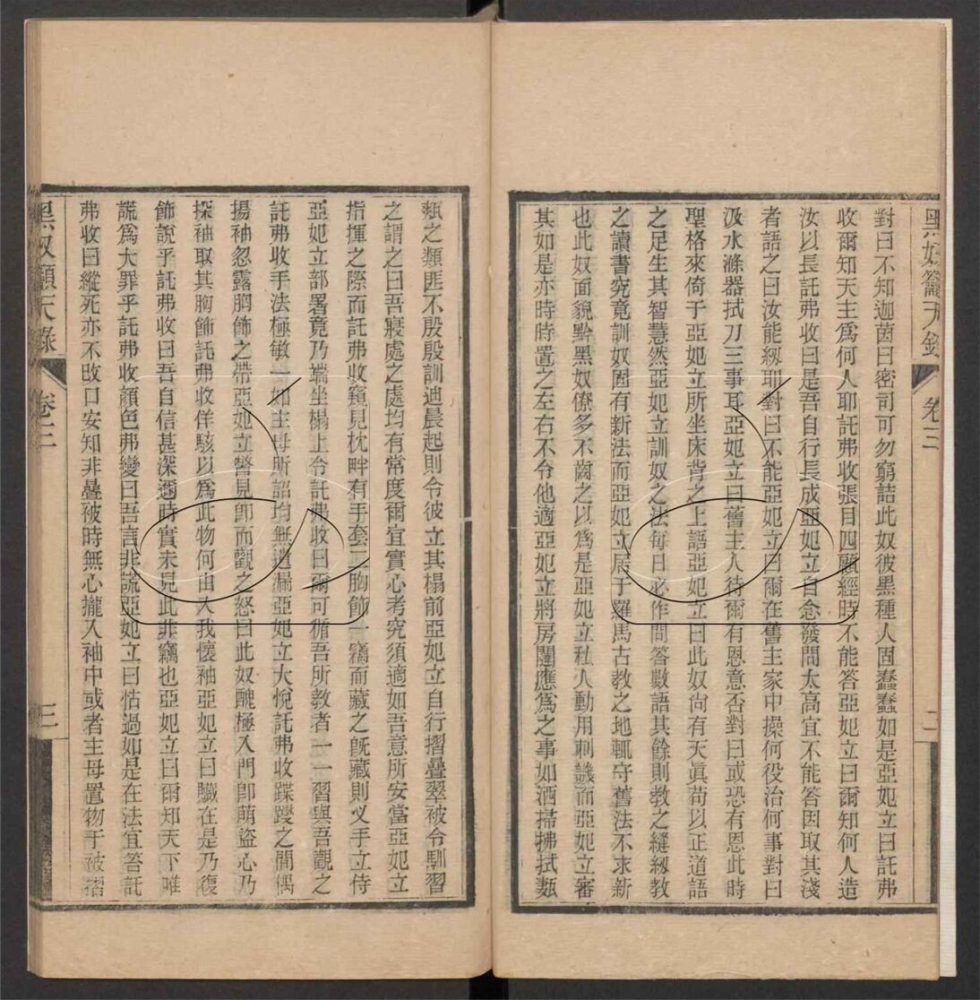 黑奴籲天錄 卷三 二
對曰不知迦茵曰密司可勿窮詰此奴彼黑種人固蠢蠢如是亞妃立曰託弗
收爾知天主爲何人耶託弗收張目四顧經時不能答亞妃立曰爾知何人造
汝以長託弗收曰是吾自行長成亞妃立自念發問太高宜不能答因取其淺
者語之曰汝能紉耶對曰不能亞妃立曰爾在舊主家中操何役治何事對曰
汲水滌器拭刀三事耳亞妃立曰舊主人待爾有恩意否對曰或恐有恩此時
聖格來倚于亞妃立所坐床背之上語亞妃立曰此奴尙有天眞苟以正道語
之足生其智慧然亞妃立訓奴之法每日必作問答數語其餘則教之縫紉教
之讀書究竟訓奴固有新法而亞妃立居于羅馬古教之地輒守舊法不求新
也此奴面貌黔黑奴僚多不齒之以爲是亞妃立私人動用刺譏而亞妃立審
其如是亦時時置之左右不令他適亞妃立將房闥應爲之事如洒掃拂拭類
類之類匪不殷殷訓迪晨起則令彼立其榻前亞妃立自行摺疊翠被令馴習
之謂之曰吾寢處之處均有常度爾宜實心考究須適如吾意所安當亞妃立
指揮之際而託弗收窺見枕畔有手套二胸飾一竊而藏之旣藏則叉手立侍
亞妃立部署竟乃端坐榻上令託弗收曰爾可循吾所教者一一習與吾觀之
託弗收手法極敏一如主母所詔均無遺漏亞妃立大悅託弗收蹀躞之間偶
揚袖忽露胸飾之帶亞妃立瞥見卽而觀之怒曰此奴醜極入門卽萌盜心乃
探袖取其胸飾託弗收佯駭以爲此物何由入我懷袖亞妃立曰贓在是乃復
飾說乎託弗收曰吾自信甚深邇時實未見此非竊也亞妃立曰爾知天下唯
謊爲大罪乎託弗收顏色弗變曰吾言非謊亞妃立曰怙過如是在法宜笞託
弗收曰縱死亦不改口安知非疊被時無心攏入袖中或者主母置物于被摺
黑奴籲天錄 卷三 三